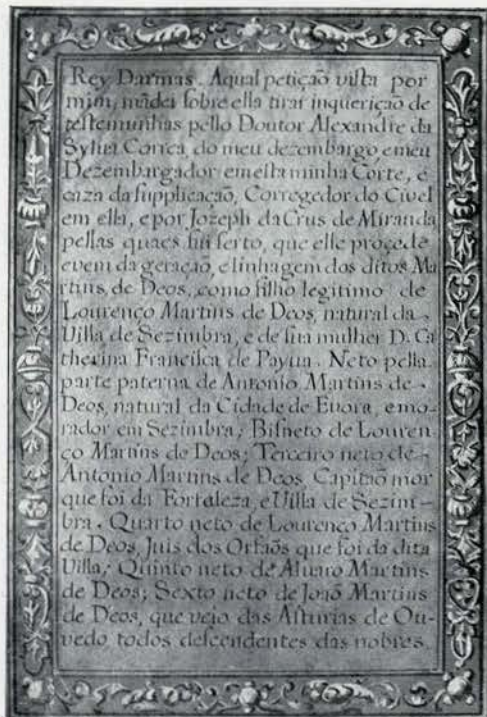 Rey Darmas. Aqual petição vista por
mim, mãdei sobre ella tirar inquerição de
testemunhas pello Doutor Alexandre da
Sylua Correa, do meu dezembargo, e meu
Dezembargador em esta minha Corte, e
caza da supplicação, Corregedor do Civel
em ella, e por Jozeph da Crus de Miranda
pellas quaes fui serto, que elle procede
e vem da geração, e linhagem dos ditos Ma
rtins, de Deos, como filho legitimo de
Lourenço Martins de Deos, natural da
Uilla de Sezimbra, e de sua mulher D. Ca
therina Francisca de Payua. Neto pella
parte paterna de Antonio Martins de
Deos, natural da Cidade de Euora, e mo-
rador em Sezimbra; Bisneto de Louren
ço Martins de Deos; Terceiro neto de
Antonio Martins de Deos, Capitão mor
que foi da Fortaleza, e Uilla de Sezim-
bra. Quarto neto de Lourenço Martins
de Deos, Juis dos Orfaõs que foi da dita
Uilla; Quinto neto de Aluaro Martins
de Deos; Sexto neto de Joaõ Martins
de Deos, que vejo das Asturias de Ou-
vedo todos descendentes das nobres